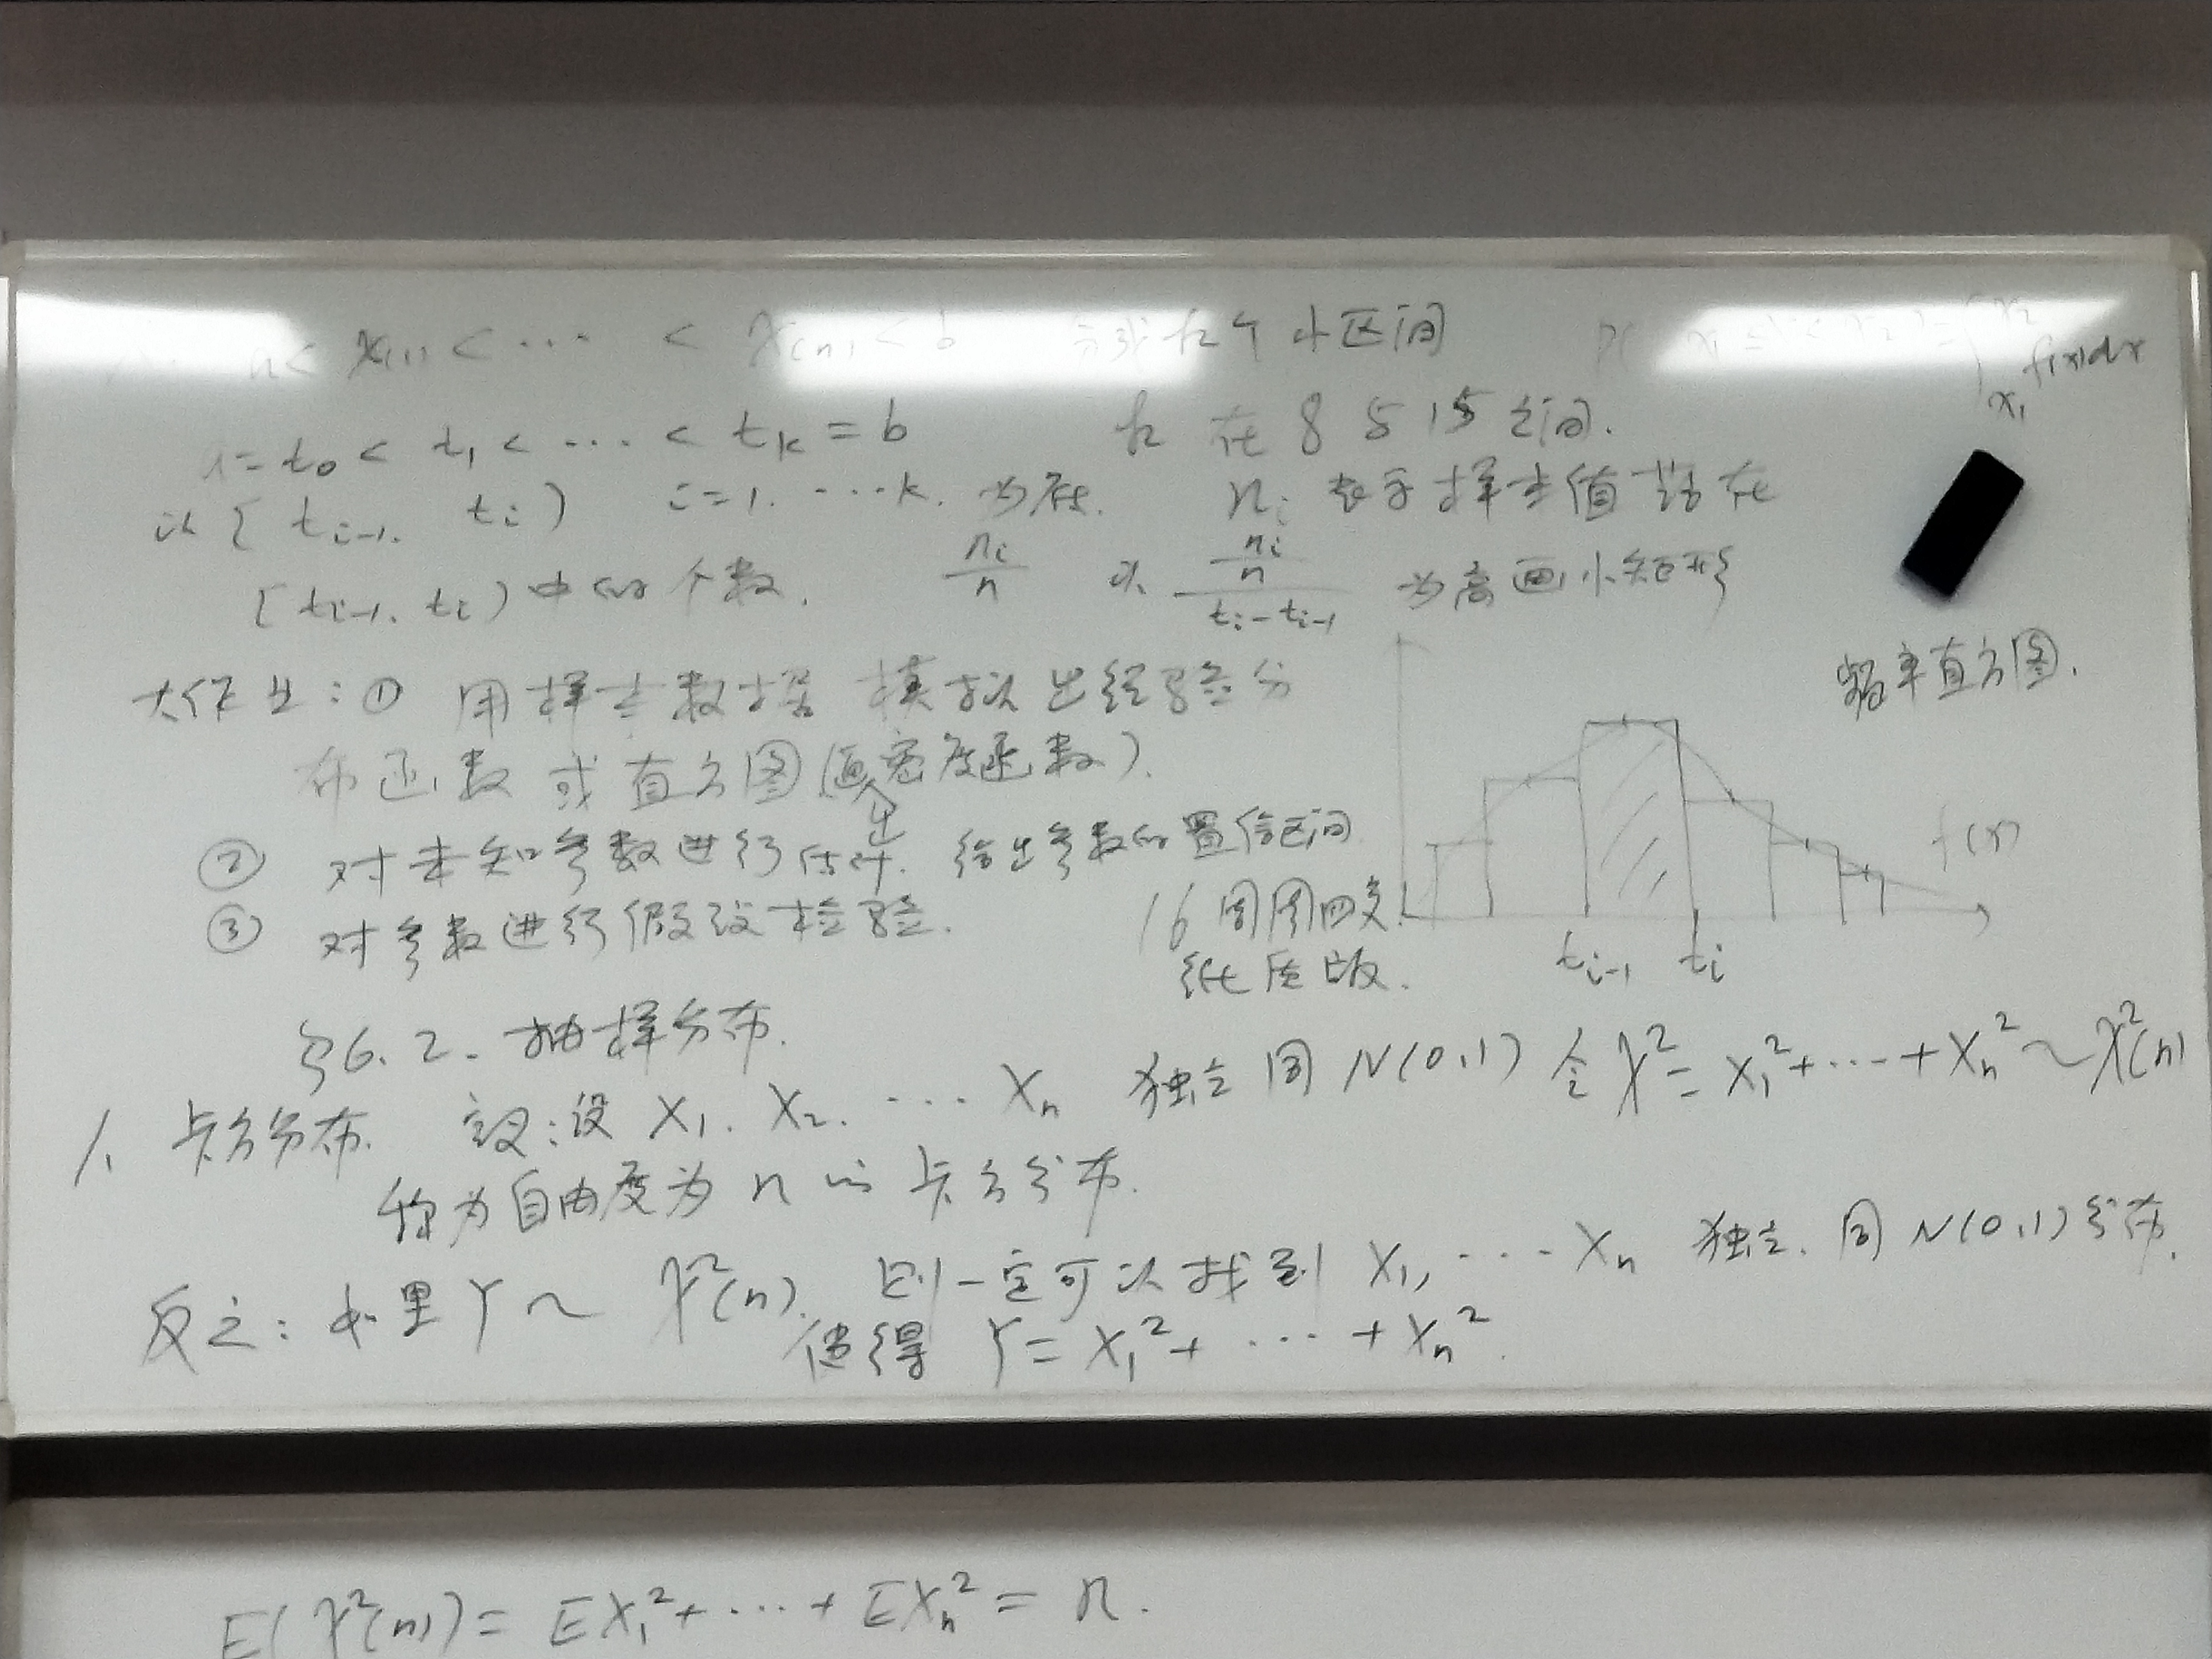 a < x(1) < ··· < x(n) < b 分成 k 个 小区间 P( x1 ≤ X < x2 ) = ∫x1^x2 f(x)dx
a = t0 < t1 < ··· < tk = b k 在 8 5 15 之间.
以 [ ti-1. ti ) i=1. ···k. 为底. ni 表示样本值落在
[ ti-1. ti ) 中的个数. ni/n 以 (ni/n)/(ti-ti-1) 为高画小矩形
频率直方图.
大作业: ① 用样本数据 模拟出经验分
布函数 或 直方图 (画出密度函数).
② 对未知参数进行估计. 给出参数的置信区间
③ 对参数进行假设检验.
16周周四交!
纸质版.
f(x)
ti-1 ti
§6.2. 抽样分布.
1. 卡方分布. 定义: 设 X1. X2. ··· Xn 独立 同 N(0,1) 令 χ² = X1² + ··· + Xn² ~ χ²(n)
称为自由度为 n 的 卡方分布.
反之: 如果 Y ~ χ²(n). 则一定可以找到 X1, ··· Xn 独立. 同 N(0,1) 分布.
使得 Y = X1² + ··· + Xn².
E( χ²(n)) = EX1² + ··· + EXn² = n.